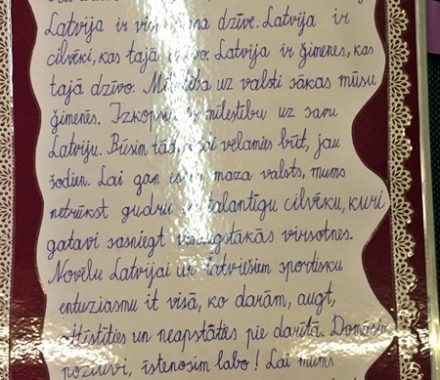 Latvija ir dzīve. Latvija ir
cilvēki, kas tajā dzīvo. Latvija ir ģimenes, kas
tajā dzīvo. Mīlestība uz valsti sākas mūsu
ģimenēs. Izkopsim mīlestību uz savu
Latviju. Būsim tādi, kādi vēlamies būt, jau
šodien. Lai gan esam maza valsts, mums
netrūkst gudru un talantīgu cilvēku, kuri
gatavi sasniegt visaugstākās virsotnes.
Novēlu Latvijai un latviešiem sportisku
entuziasmu it visā, ko darām, augt,
attīstīties un neapstāties pie darītā. Domāsim
pozitīvi, īstenosim labo! Lai mums